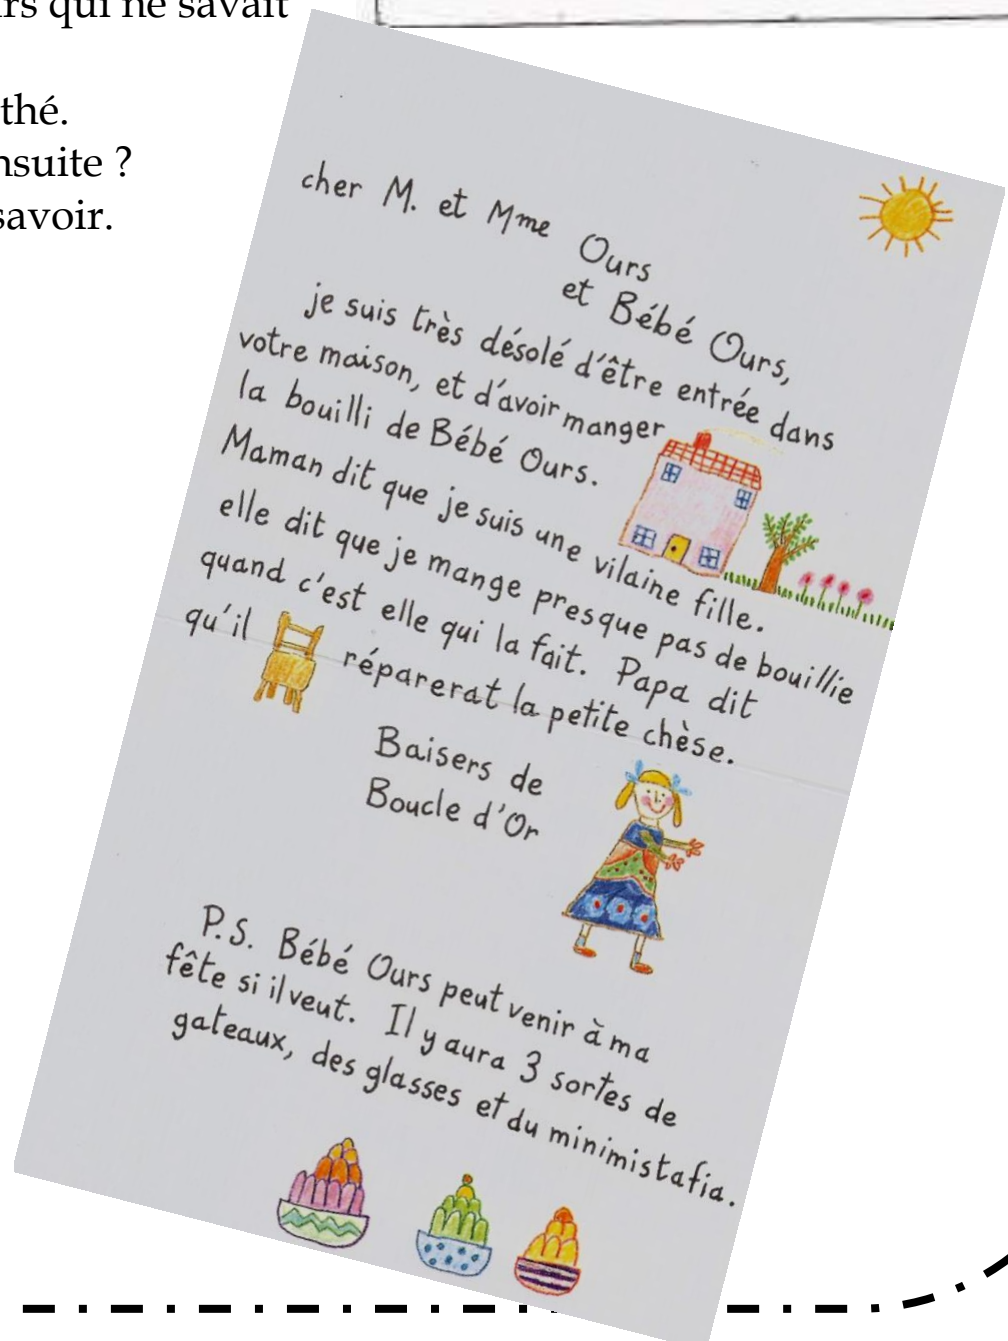 rs qui ne savait
thé.
nsuite ?
savoir.
cher M. et Mme Ours
et Bébé Ours,
je suis très désolé d'être entrée dans
votre maison, et d'avoir manger
la bouilli de Bébé Ours.
Maman dit que je suis une vilaine fille.
elle dit que je mange presque pas de bouillie
quand c'est elle qui la fait. Papa dit
qu'il réparerat la petite chèse.
Baisers de
Boucle d'Or
P.S. Bébé Ours peut venir à ma
fête si il veut. Il y aura 3 sortes de
gateaux, des glasses et du minimistafia.